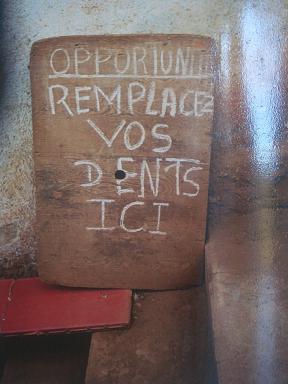 OPPORTUNITÉ
REMPLACEZ
VOS
DENTS
ICI